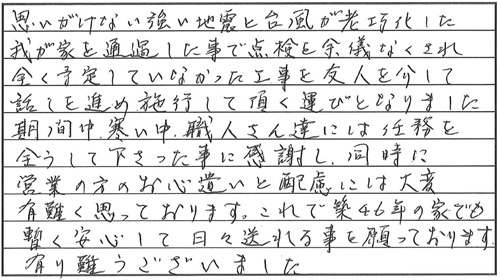 思いがけない強い地震と台風が老朽化した
我が家を通過した事で点検を余儀なくされ
全く予定していなかった工事を友人を介して
話しを進め施行して頂く運びとなりました
期間中、寒い中、職人さん達には任務を
全うして下さった事に感謝し、同時に
営業の方のお心遣いと配慮には大変
有難く思っております。これで築46年の家でも
暫く安心して日々送れる事を願っております
有り難うございました